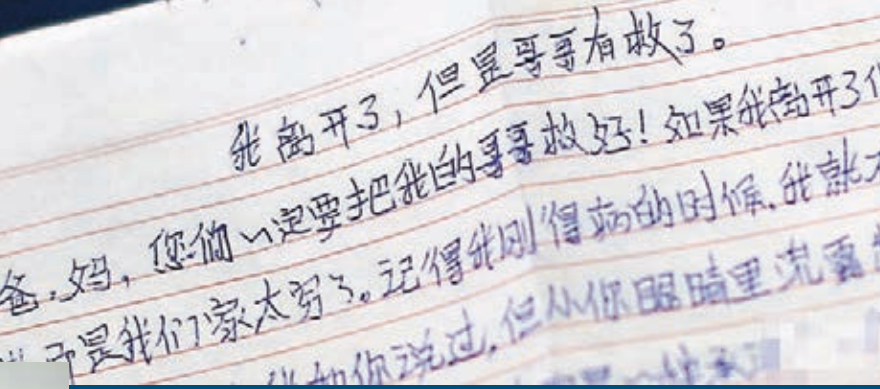 我离开了，但是哥哥有救了。
爸.妈，您们一定要把我的哥哥救好！如果我离开了
是我们家太穷了。记得我刚得病的时候.我就
你说过,但从你眼睛里流露